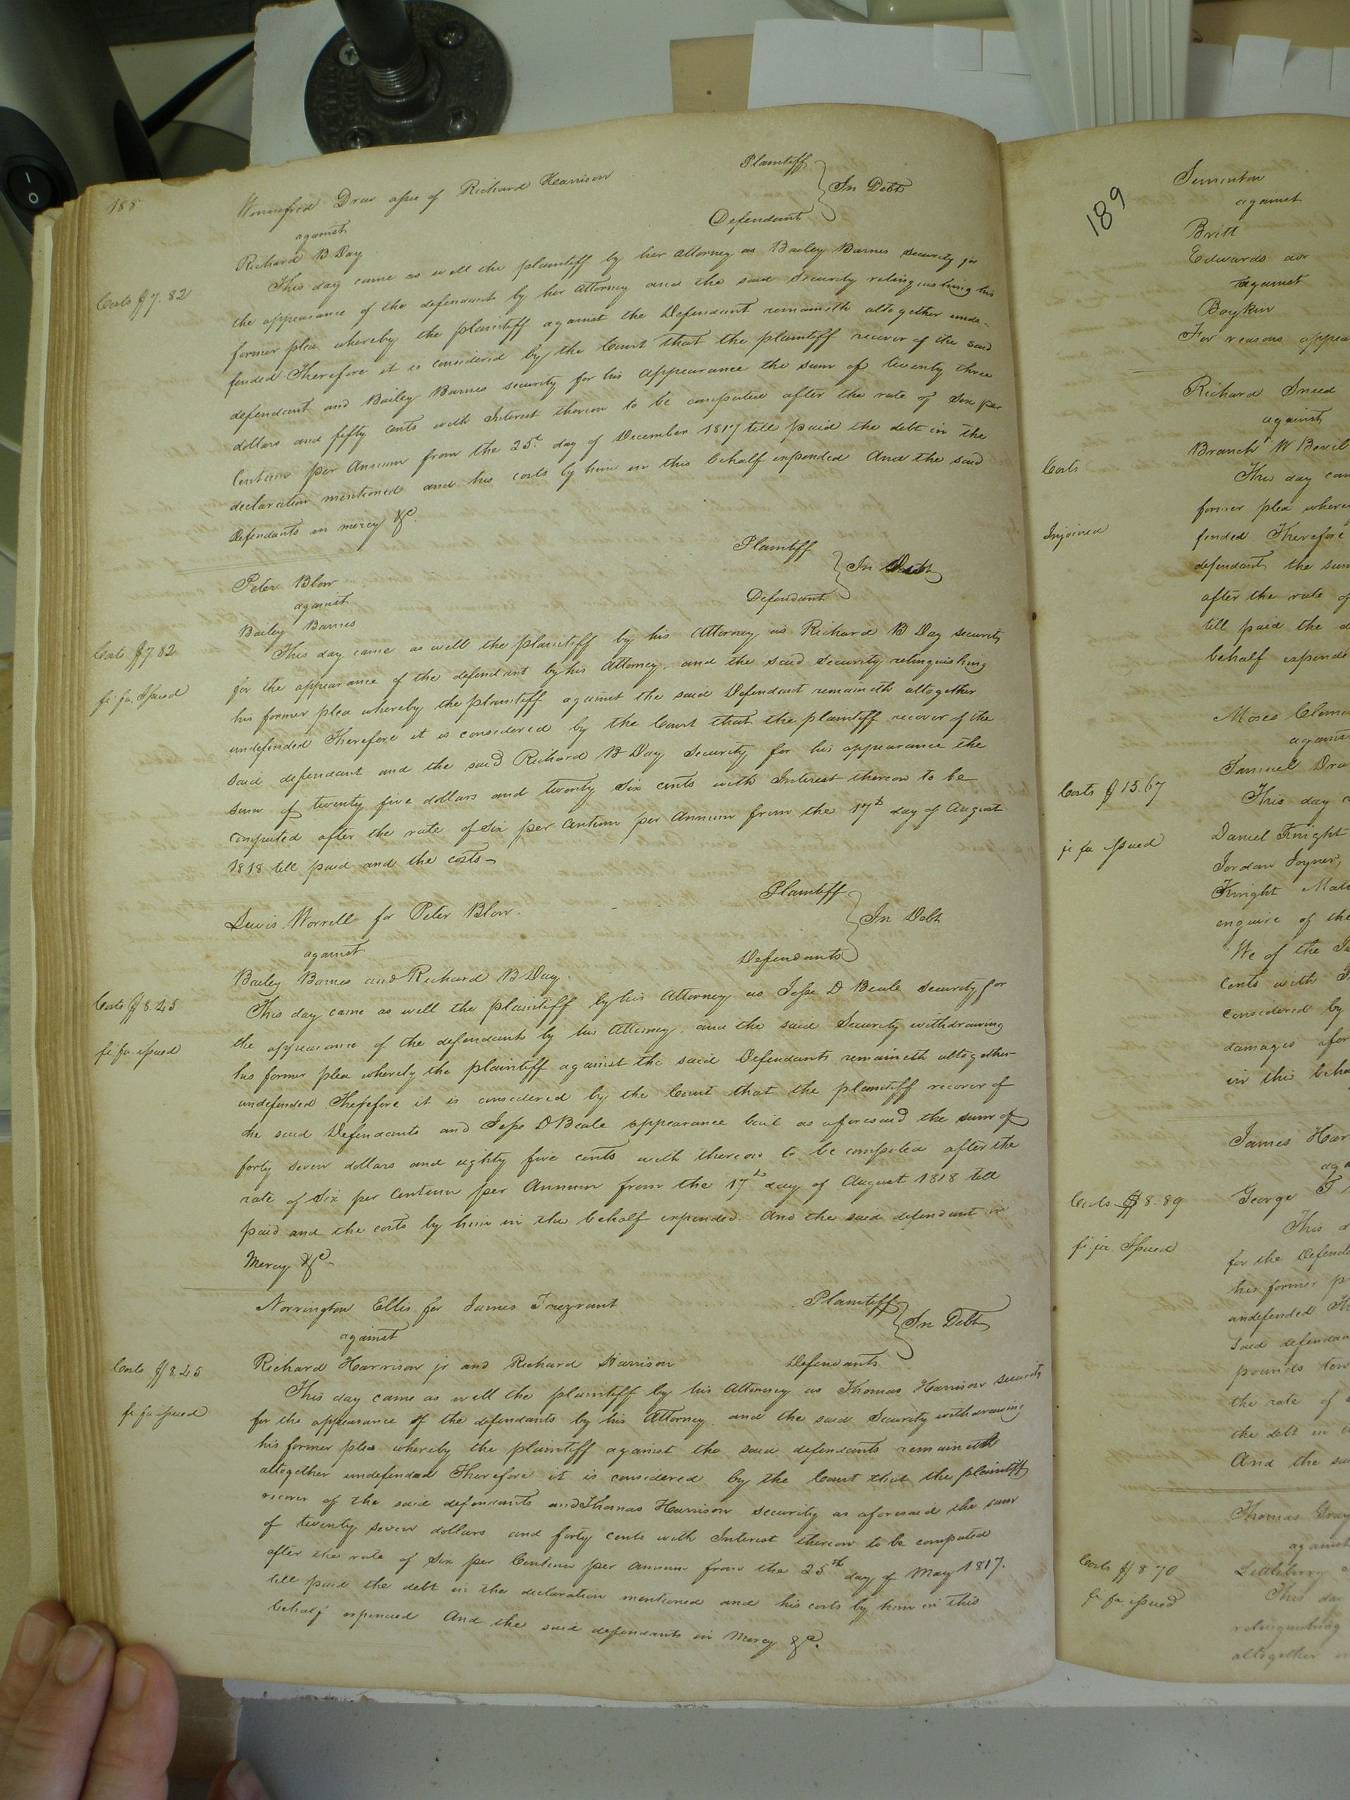 188
Winnifred Drew assee of Richard Harrison Plaintiff
against } In Debt
Richard B Day Defendant
Costs $7.82
This day came as well the plaintiff by her attorney as Bailey Barnes security for
the appearance of the defendant by her Attorney and the said Security relinquishing his
former plea whereby the plaintiff against the Defendant remaineth altogether unde-
fended Therefore it is considered by the Court that the plaintiff recover of the said
defendant and Bailey Barnes security for his appearance the sum of twenty three
dollars and fifty cents with Interest thereon to be computed after the rate of Six per
Centum per Annum from the 25th day of December 1817 till paid the debt in the
declaration mentioned and his costs by him in this behalf expended And the said
Defendants in mercy &c.
Peter Blow Plaintiff
against } In Debt
Bailey Barnes Defendant
Costs $7.82
fi fa Issued
This day came as well the plaintiff by his Attorney as Richard B Day security
for the appearance of the defendant by his Attorney and the said Security relinquishing
his former plea whereby the plaintiff against the said Defendant remaineth altogether
undefended Therefore it is considered by the Court that the plaintiff recover of the
said defendant and the said Richard B Day Security for his appearance the
sum of twenty five dollars and twenty Six cents with Interest thereon to be
computed after the rate of Six per Centum per Annum from the 17th day of August
1818 till paid and the costs
Lewis Worrell for Peter Blow. Plaintiff
against } In Debt
Bailey Barnes and Richard B Day. Defendants
Costs $8.45
fi fa issued
This day came as well the plaintiff by his Attorney as Jesse D Beale security for
the appearance of the defendants by his Attorney and the said Security withdrawing
his former plea whereby the plaintiff against the said Defendants remaineth altogether
undefended Therefore it is considered by the Court that the plaintiff recover of
the said Defendants and Jesse D Beale appearance bail as aforesaid the sum of
forty seven dollars and eighty five cents with thereon to be computed after the
rate of Six per Centum per Annum from the 17th day of August 1818 till
paid and the costs by him in the behalf expended And the said defendant in
Mercy &c.
Norrington Ellis for James Trezvant Plaintiff
against } In Debt
Richard Harrison jr and Richard Harrison Defendants
Costs $8.45
fi fa issued
This day came as well the plaintiff by his Attorney as Thomas Harrison security
for the appearance of the defendants by his Attorney and the said Security withdrawing
his former plea whereby the plaintiff against the said defendants remaineth
altogether undefended Therefore it is considered by the Court that the plaintiff
recover of the said defendants and Thomas Harrison security as aforesaid the sum
of twenty seven dollars and forty cents with Interest thereon to be computed
after the rate of Six per Centum per annum from the 25th day of May 1817.
till paid the debt in the declaration mentioned and his costs by him in this
behalf expended And the said defendants in Mercy &c.
189
against
Britt
Edwards
against
Boykin
For reasons appea
Richard Sneed
against
Costs
Branch W
This day cam
former plea where
Injoined
fended Therefore
defendant the sum
after the rate of
till paid the d
behalf expende
Moses Clem
against
Samuel Dre
Costs $15.67
This day
fi fa Issued
Daniel Knight
Jordan Joyner,
Knight
enquire of the
We of the Ju
cents with
considered by
damages afor
in this beha
James Har
ag
Costs $8.89
George T
fi fa Issued
This d
for the Defend
his former p
undefended Th
said defendan
pounds ten
the rate of
the debt in
And the sa
Thomas Gray
against
Costs $8.70
Littleberry
fi fa issued
This da
relinquishing
altogether